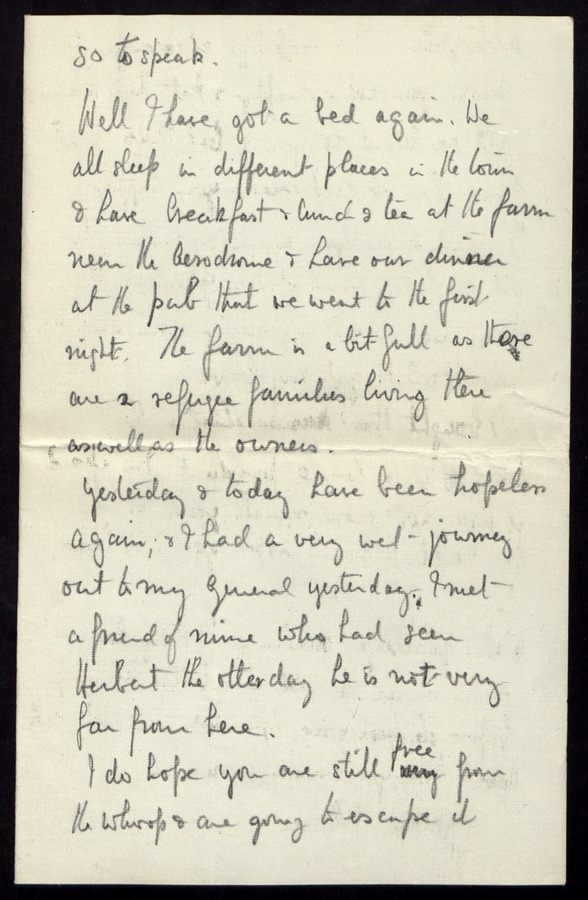 so to speak.
Well I have got a bed again. We
all sleep in different places in the town
& have breakfast & lunch & tea at the farm
near the aerodrome & have our dinner
at the pub that we went to the first
night. The farm is a bit full as there
are 2 refugee families living there
as well as the owners.
Yesterday & today have been hopeless
again, & I had a very wet journey
out to my General yesterday. I met
a friend of mine who had seen
Herbert the other day he is not very
far from here.
I do hope you are still free from
the whoop & are going to escape it